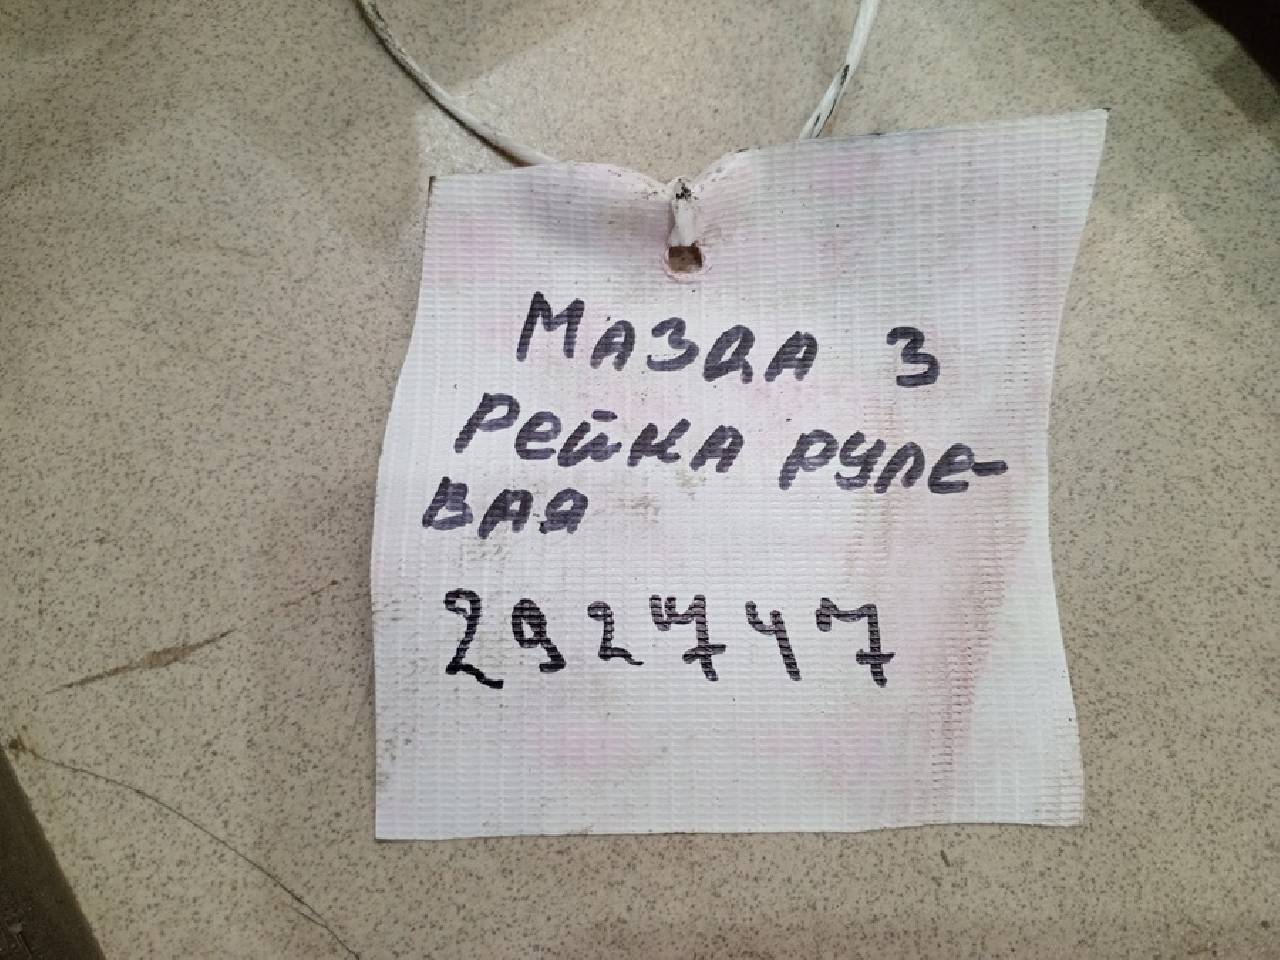 Мазда 3
Рейка руле-
вая
292747